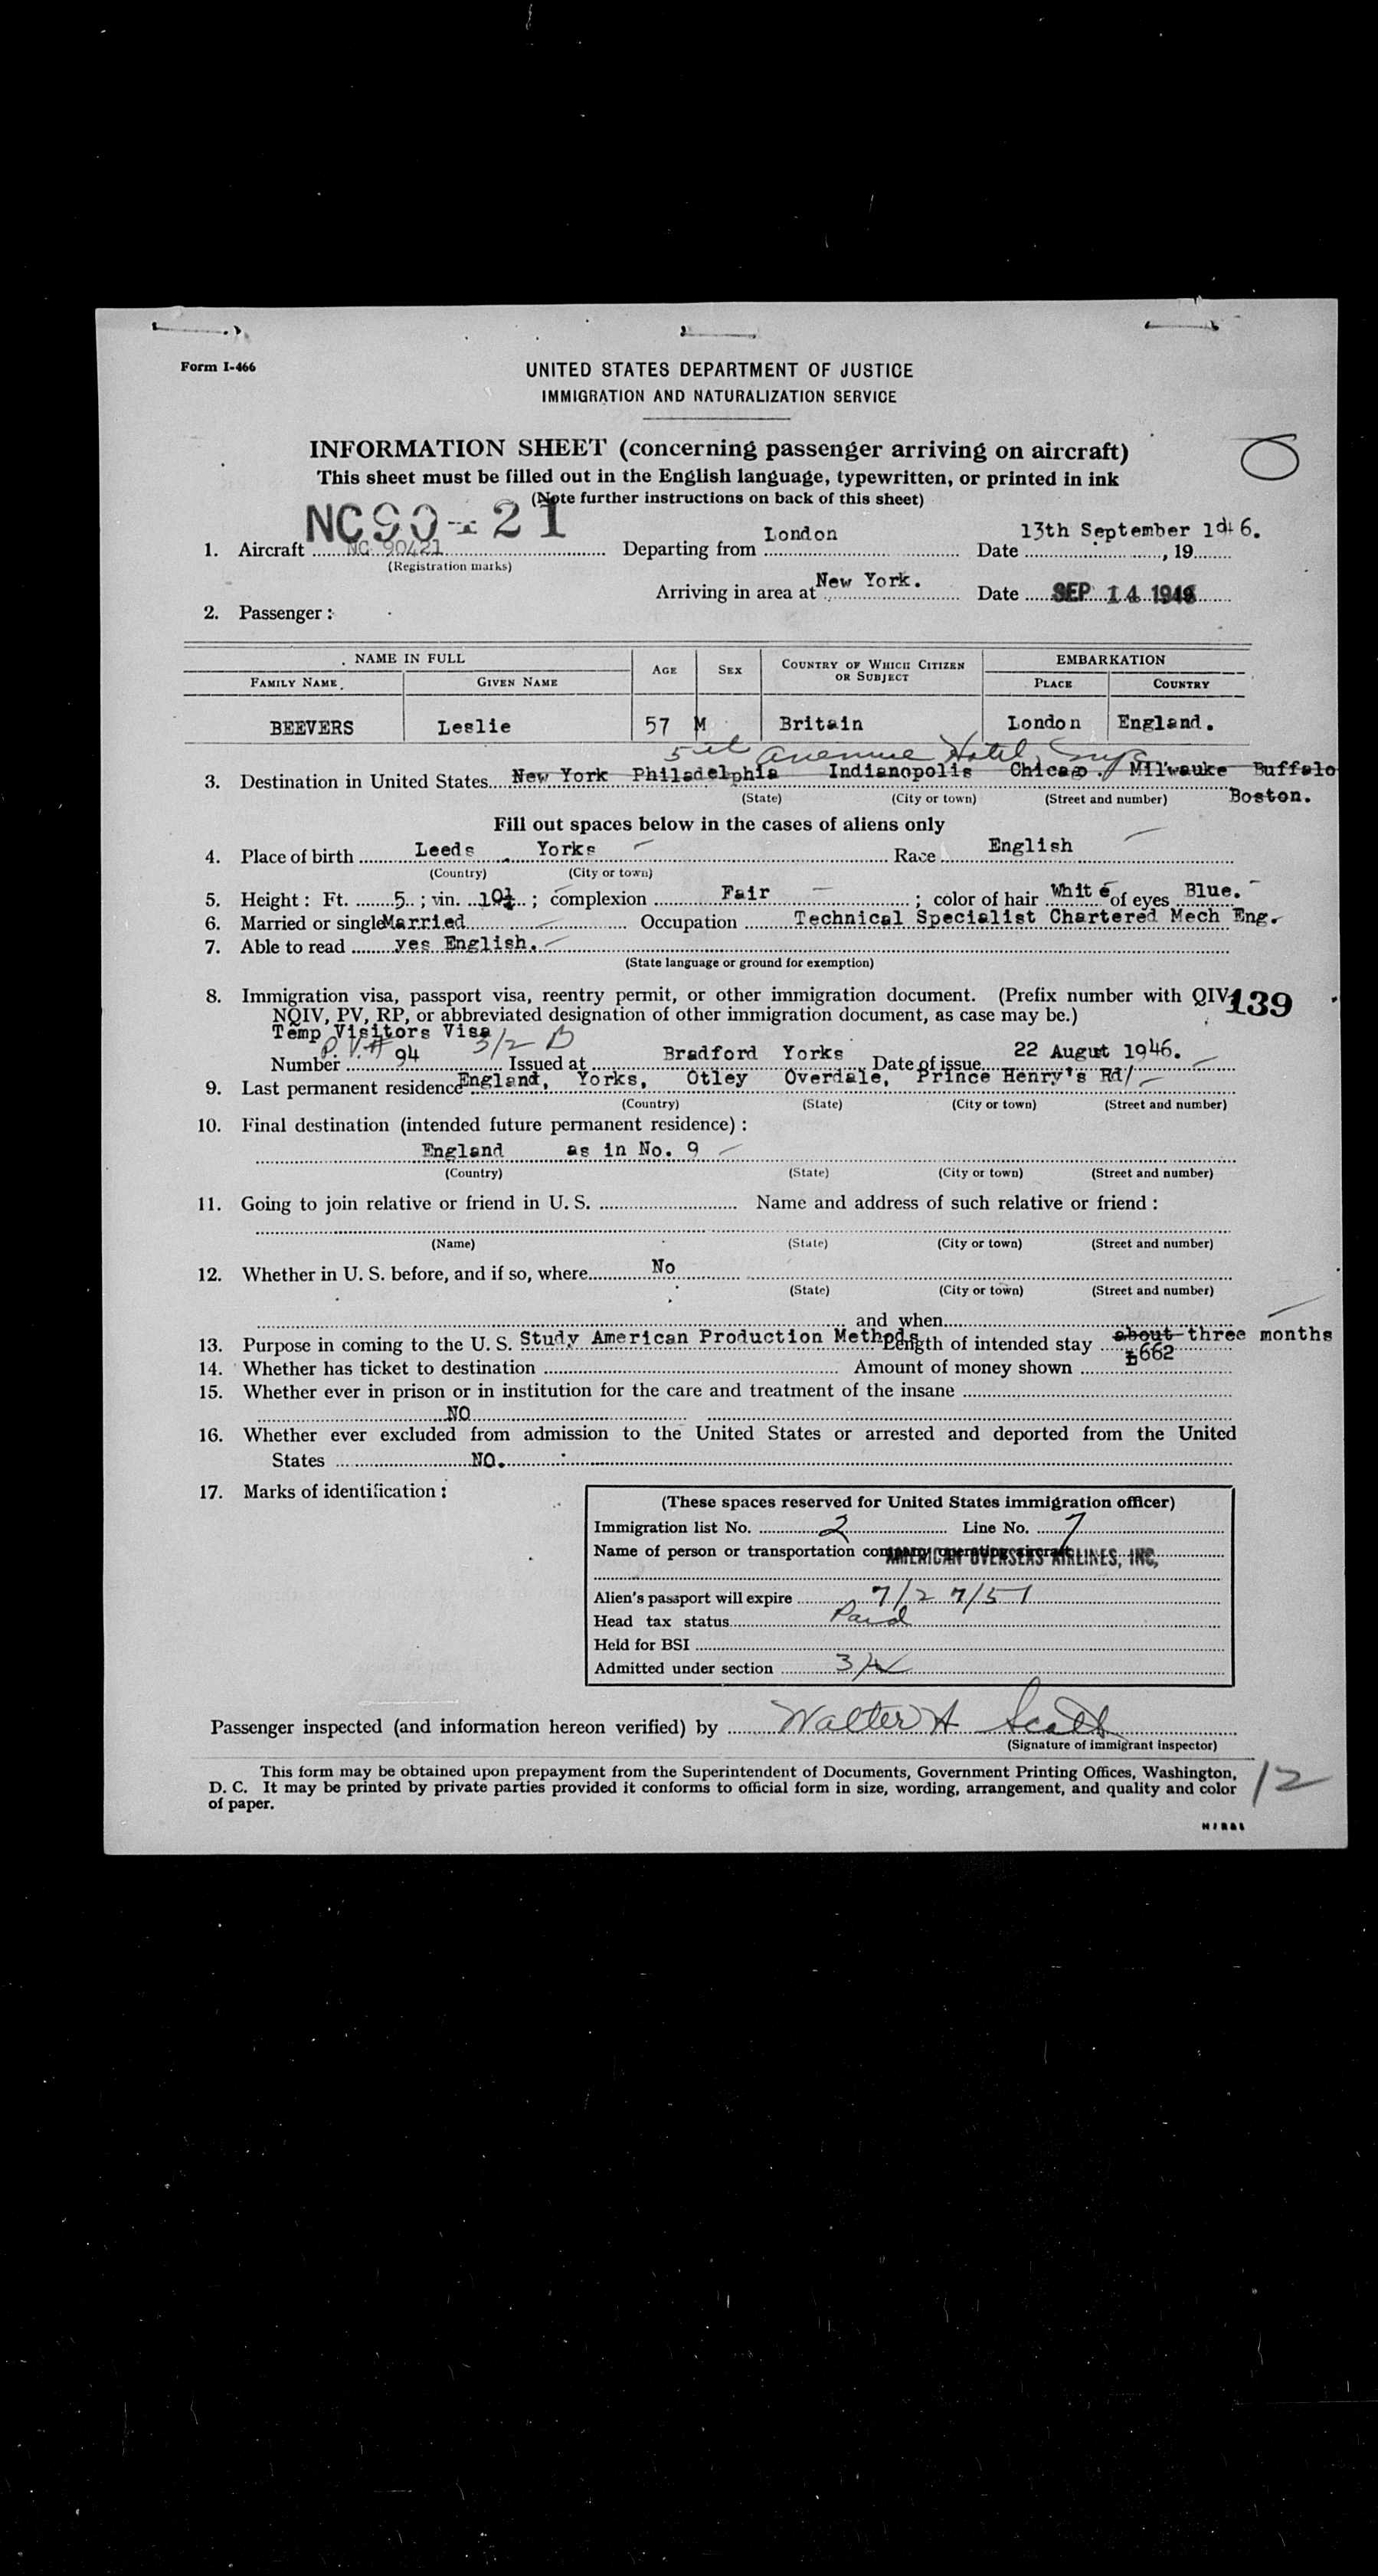 Form I-466
UNITED STATES DEPARTMENT OF JUSTICE
IMMIGRATION AND NATURALIZATION SERVICE
INFORMATION SHEET (concerning passenger arriving on aircraft)
This sheet must be filled out in the English language, typewritten, or printed in ink
(Note further instructions on back of this sheet)
1. Aircraft NC 90421 Departing from London Date 13th September 1946. , 19
(Registration marks)
Arriving in area at New York. Date SEP 14 1946
2. Passenger:
NAME IN FULL AGE SEX COUNTRY OF WHICH CITIZEN OR SUBJECT EMBARKATION
FAMILY NAME GIVEN NAME PLACE COUNTRY
BEEVERS Leslie 57 M Britain London England.
5th Avenue Hotel
3. Destination in United States New York Philadelphia Indianopolis Chicago. MIlwauke Buffalo
(State) (City or town) (Street and number) Boston.
Fill out spaces below in the cases of aliens only
4. Place of birth Leeds Yorks Race English
(Country) (City or town)
5. Height: Ft. 5 ; in. 10½ ; complexion Fair ; color of hair White of eyes Blue.
6. Married or single Married Occupation Technical Specialist Chartered Mech Eng.
7. Able to read yes English.
(State language or ground for exemption)
8. Immigration visa, passport visa, reentry permit, or other immigration document. (Prefix number with QIV, 139
NQIV, PV, RP, or abbreviated designation of other immigration document, as case may be.)
Temp Visitors Visa
P.V.# 3/2 B
Number 94 Issued at Bradford Yorks Date of issue 22 August 1946.
9. Last permanent residence England, Yorks, Otley Overdale, Prince Henry's Rd/
(Country) (State) (City or town) (Street and number)
10. Final destination (intended future permanent residence):
England as in No. 9
(Country) (State) (City or town) (Street and number)
11. Going to join relative or friend in U. S. Name and address of such relative or friend:
(Name) (State) (City or town) (Street and number)
12. Whether in U. S. before, and if so, where No
(State) (City or town) (Street and number)
and when
13. Purpose in coming to the U. S. Study American Production Methods Length of intended stay about three months
14. Whether has ticket to destination Amount of money shown £662
15. Whether ever in prison or in institution for the care and treatment of the insane
NO
16. Whether ever excluded from admission to the United States or arrested and deported from the United
States NO.
17. Marks of identification:
(These spaces reserved for United States immigration officer)
Immigration list No. 2 Line No. 7
Name of person or transportation company operating aircraft AMERICAN OVERSEAS AIRLINES, INC,
Alien's passport will expire 7/27/51
Head tax status Paid
Held for BSI
Admitted under section
Passenger inspected (and information hereon verified) by Walter A Scott
(Signature of immigrant inspector)
This form may be obtained upon prepayment from the Superintendent of Documents, Government Printing Offices, Washington,
D. C. It may be printed by private parties provided it conforms to official form in size, wording, arrangement, and quality and color
of paper.
12